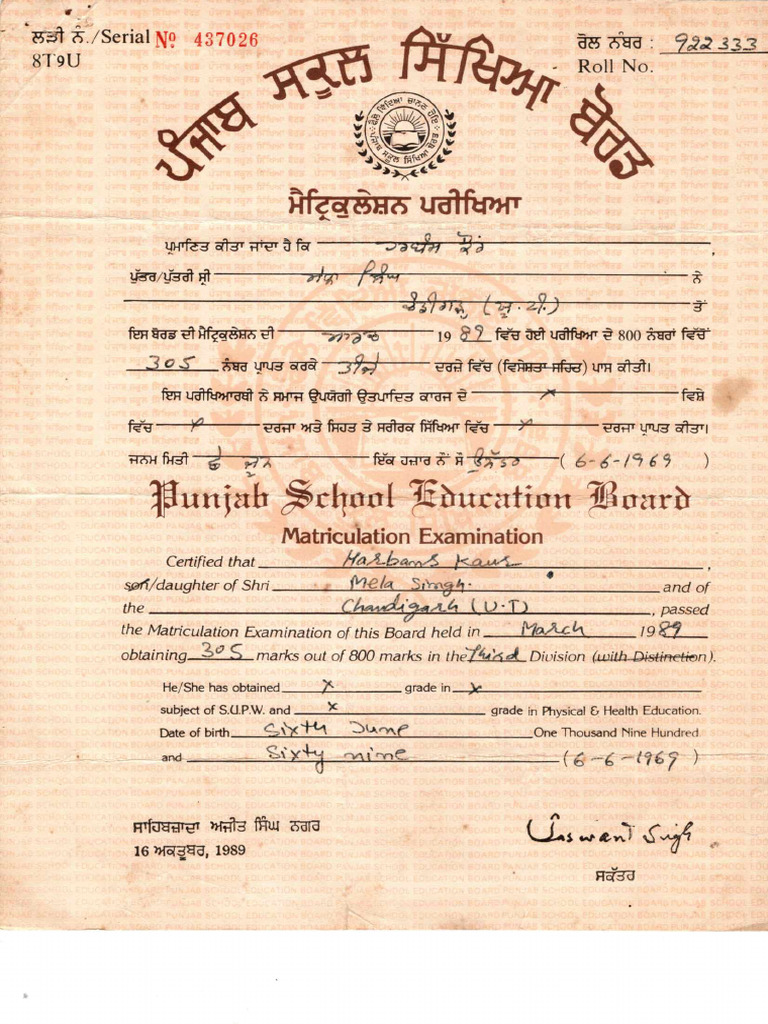 ਲੜੀ ਨੰ./Serial № 437026
8T9U
ਰੋਲ ਨੰਬਰ : 922333
Roll No.
ਪੰਜਾਬ ਸਕੂਲ ਸਿੱਖਿਆ ਬੋਰਡ
ਮੈਟ੍ਰਿਕੁਲੇਸ਼ਨ ਪਰੀਖਿਆ
ਪ੍ਰਮਾਣਿਤ ਕੀਤਾ ਜਾਂਦਾ ਹੈ ਕਿ ਹਰਬੰਸ ਕੌਰ,
ਪੁੱਤਰ/ਪੁੱਤਰੀ ਸ਼੍ਰੀ ਮੇਲਾ ਸਿੰਘ ਨੇ
ਚੰਡੀਗੜ੍ਹ (ਯੂ.ਟੀ.) ਤੋਂ
ਇਸ ਬੋਰਡ ਦੀ ਮੈਟ੍ਰਿਕੁਲੇਸ਼ਨ ਦੀ ਮਾਰਚ 1989 ਵਿੱਚ ਹੋਈ ਪਰੀਖਿਆ ਦੇ 800 ਨੰਬਰਾਂ ਵਿੱਚੋਂ
305 ਨੰਬਰ ਪ੍ਰਾਪਤ ਕਰਕੇ ਤੀਜੇ ਦਰਜੇ ਵਿੱਚ (ਵਿਸ਼ੇਸ਼ਤਾ ਸਹਿਤ) ਪਾਸ ਕੀਤੀ।
ਇਸ ਪਰੀਖਿਆਰਥੀ ਨੇ ਸਮਾਜ ਉਪਯੋਗੀ ਉਤਪਾਦਿਤ ਕਾਰਜ ਦੇ x ਵਿਸ਼ੇ
ਵਿੱਚ x ਦਰਜਾ ਅਤੇ ਸਿਹਤ ਤੇ ਸਰੀਰਕ ਸਿੱਖਿਆ ਵਿੱਚ x ਦਰਜਾ ਪ੍ਰਾਪਤ ਕੀਤਾ।
ਜਨਮ ਮਿਤੀ ਛੇ ਜੂਨ ਇੱਕ ਹਜ਼ਾਰ ਨੌਂ ਸੌ ਉਨੱਤਰ (6-6-1969)
Punjab School Education Board
Matriculation Examination
Certified that Harbans Kaur,
son/daughter of Shri Mela Singh. and of
the Chandigarh (U.T), passed
the Matriculation Examination of this Board held in March 1989
obtaining 305 marks out of 800 marks in the Third Division (with Distinction).
He/She has obtained x grade in x
subject of S.U.P.W. and x grade in Physical & Health Education.
Date of birth Sixth June One Thousand Nine Hundred
and Sixty nine (6-6-1969)
ਸਾਹਿਬਜ਼ਾਦਾ ਅਜੀਤ ਸਿੰਘ ਨਗਰ
16 ਅਕਤੂਬਰ, 1989
Jaswant Singh
ਸਕੱਤਰ